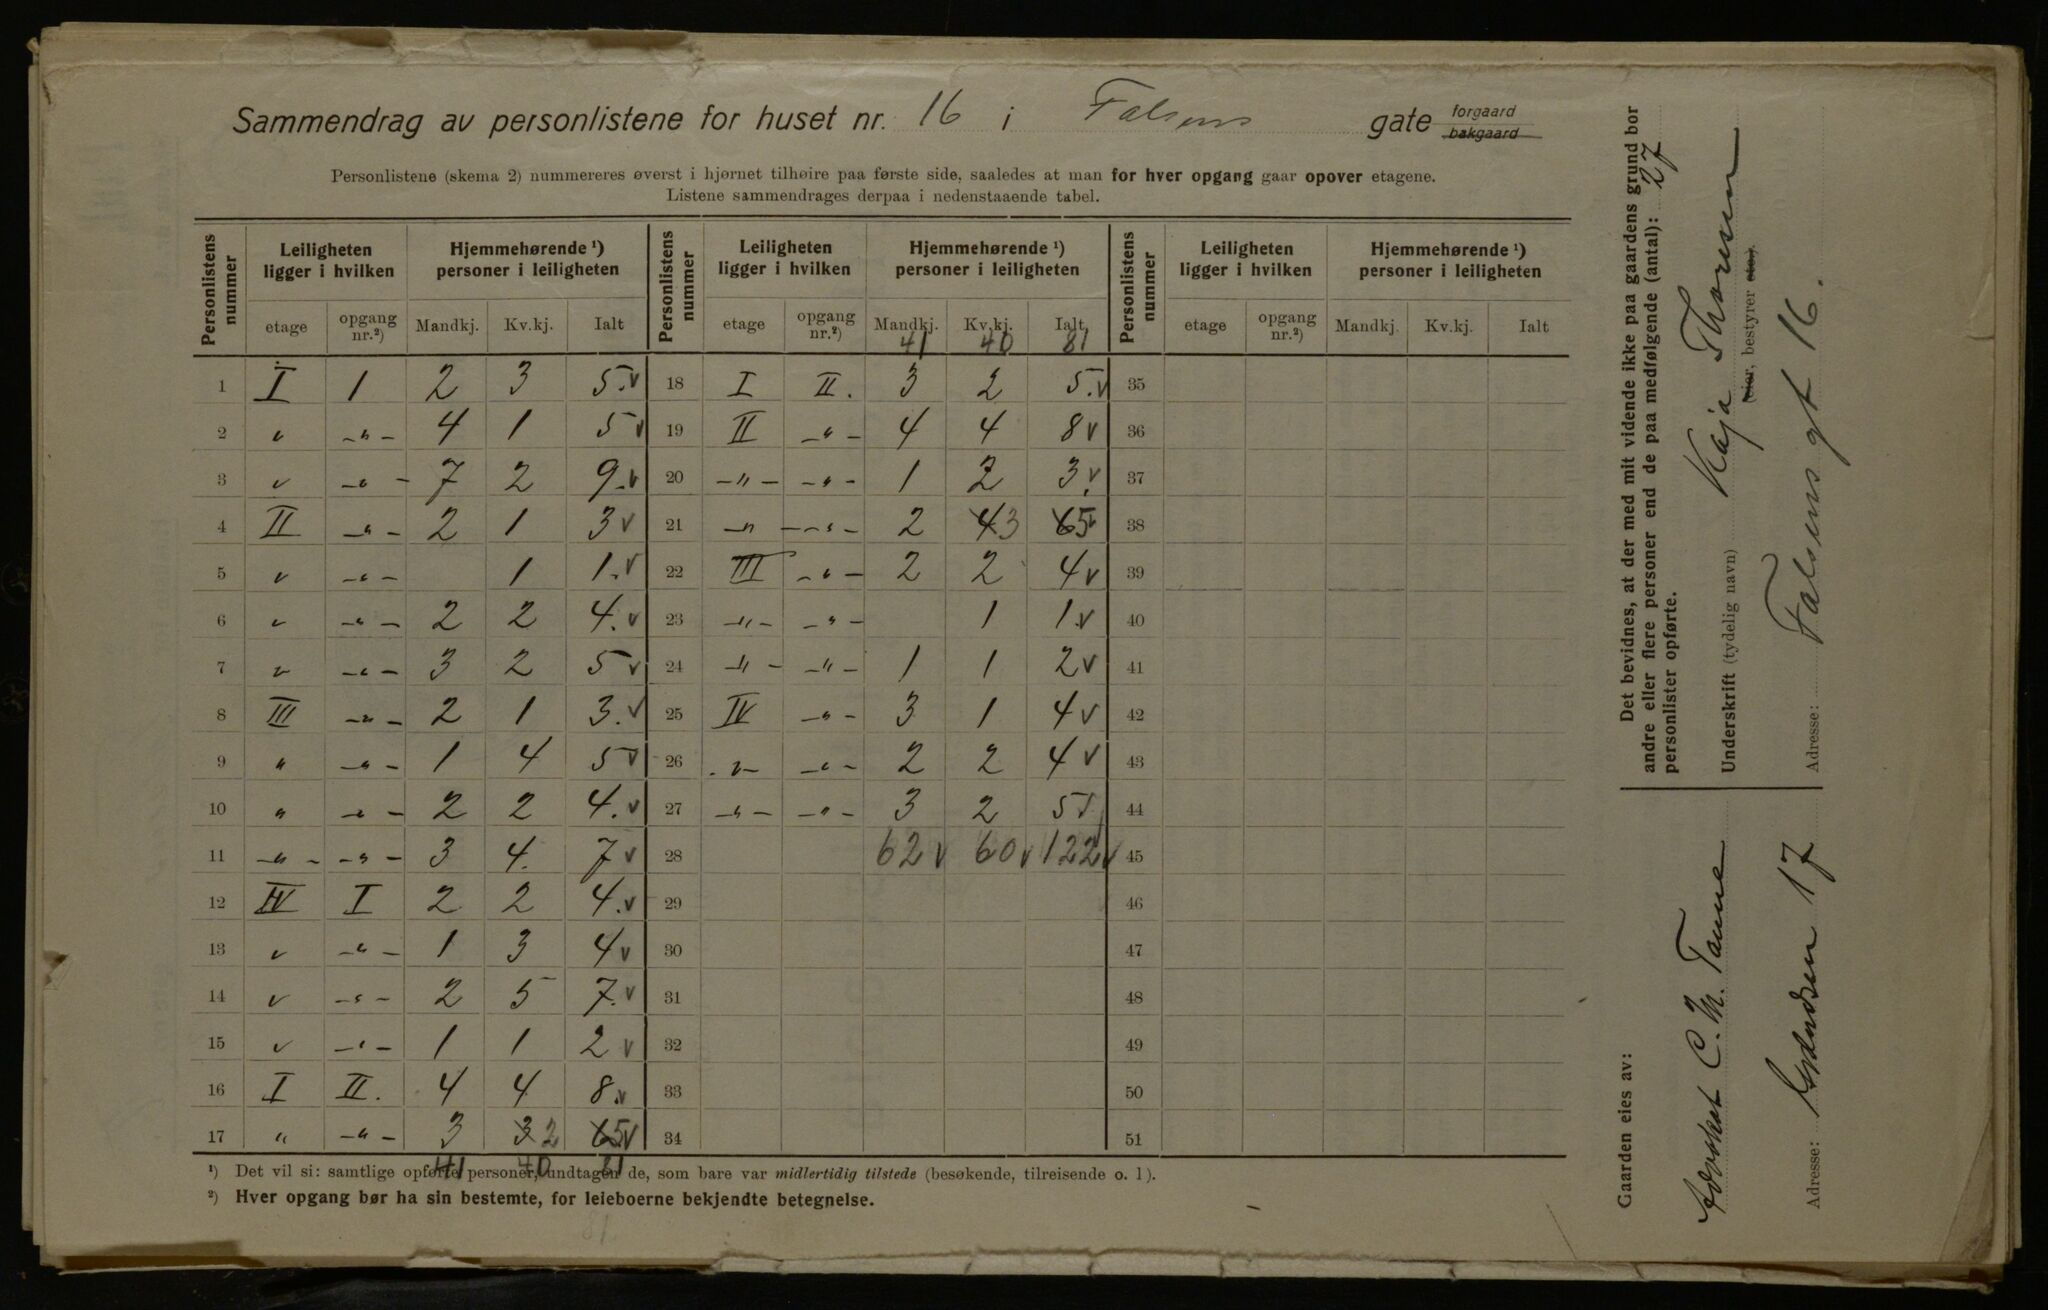 Sammendrag av personlistene for huset nr. 16 i Falsens gate forgaard bakgaard
Personlistene (skema 2) nummereres øverst i hjørnet tilhøire paa første side, saaledes at man for hver opgang gaar opover etagene.
Listene sammendrages derpaa i nedenstaaende tabel.
Personlistens nummer | Leiligheten ligger i hvilken | Hjemmehørende ¹) personer i leiligheten | Personlistens nummer | Leiligheten ligger i hvilken | Hjemmehørende ¹) personer i leiligheten | Personlistens nummer | Leiligheten ligger i hvilken | Hjemmehørende ¹) personer i leiligheten
etage | opgang nr.²) | Mandkj. | Kv.kj. | Ialt | etage | opgang nr.²) | Mandkj. | Kv.kj. | Ialt | etage | opgang nr.²) | Mandkj. | Kv.kj. | Ialt
41 40 81
1 I 1 2 3 5.v 18 I II. 3 2 5.v 35
2 " -"- 4 1 5v 19 II -"- 4 4 8v 36
3 " -"- 7 2 9.v 20 -"- -"- 1 2 3.v 37
4 II -"- 2 1 3v 21 -"- -"- 2 4 3 6 5v 38
5 " -"- 1 1.v 22 III -"- 2 2 4v 39
6 " -"- 2 2 4.v 23 -"- -"- 1 1.v 40
7 " -"- 3 2 5v 24 -"- -"- 1 1 2v 41
8 III -"- 2 1 3.v 25 IV -"- 3 1 4v 42
9 " -"- 1 4 5v 26 -"- -"- 2 2 4v 43
10 " -"- 2 2 4.v 27 -"- -"- 3 2 5v 44
11 -"- -"- 3 4. 7v 28 62v 60v 122v 45
12 IV I 2 2 4.v 29 46
13 " -"- 1 3 4v 30 47
14 " -"- 2 5 7.v 31 48
15 " -"- 1 1 2v 32 49
16 I II. 4 4 8.v 33 50
17 " -"- 3 3 2 6 5v 34 51
41 40 81
¹) Det vil si: samtlige opførte personer, undtagen de, som bare var midlertidig tilstede (besøkende, tilreisende o. l).
²) Hver opgang bør ha sin bestemte, for leieboerne bekjendte betegnelse.
81
Det bevidnes, at der med mit vidende ikke paa gaardens grund bor
andre eller flere personer end de paa medfølgende (antal): 27
personlister opførte.
Underskrift (tydelig navn) Kaja Thorsen
(eier, bestyrer etc.).
Adresse: Falsens gt 16.
Gaarden eies av:
Advokat C. M.
Adresse: 17